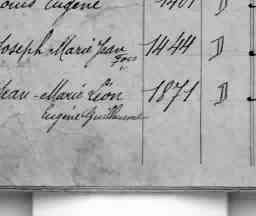 ouis Eugène 1401 D
Joseph Marie Jean 1444 D
Fois
Jean-Marie Léon 1871 D
Eugène Guillaume